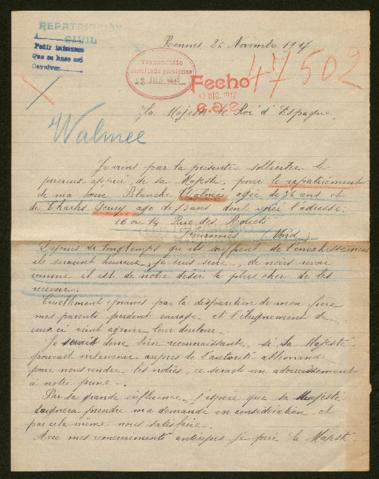 REPATRIACION
CIVIL
Pedir informes
Que se hace asi
Devolver.
Rennes 26 Novembre 1917
Fecho
47502
Sa Majesté le Roi d'Espagne
Walmee
Je viens par la présente solliciter le
précieux appui de Sa Majesté, pour le rapatriement
de ma sœur Blanche âgée de ans et
de Charles âgé de ans dont voici l'adresse:
16 ou 14 Rue des
Nord
Depuis de longtemps qu'ils souffrent de l'envahissement
ils seraient heureux, j'en suis sûre, de nous revoir
comme il est de notre désir le plus cher de les
recevoir.
Cruellement éprouvés par la disparition de mon frère
mes parents perdent courage et l'éloignement de
ceux-ci vient aggraver leur douleur.
Je serais donc bien reconnaissante, si Sa Majesté
pouvait intervenir auprès de l'autorité allemande
pour nous rendre les nôtres, ce serait un adoucissement
à notre peine.
Par sa grande influence, j'espère que Sa Majesté
daignera prendre ma demande en considération et
par cela même nous satisfaire.
Avec mes remerciements anticipés je prie Sa Majesté